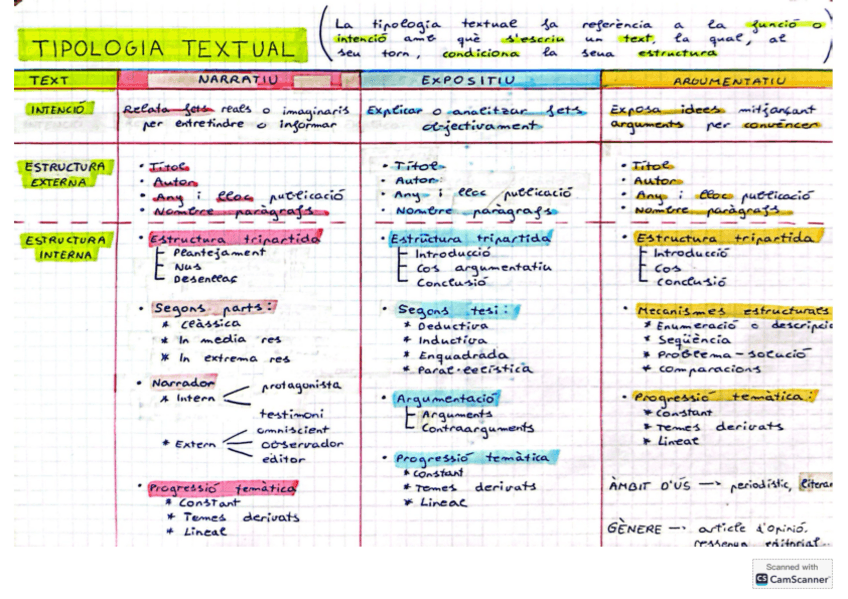 TIPOLOGIA TEXTUAL
(La tipologia textual fa referència a la funció o
intenció amb què s'escriu un text, la qual, al
seu torn, condiciona la seua estructura)
TEXT
NARRATIU
EXPOSITIU
ARGUMENTATIU
INTENCIÓ
Relata fets reals o imaginaris
per entretindre o informar
Explicar o analitzar fets
objectivament
Exposa idees mitjançant
arguments per convéncer
ESTRUCTURA
EXTERNA
• Títol
• Autor
• Any i lloc publicació
• Nombre paràgrafs
• Títol
• Autor
• Any i lloc publicació
• Nombre paràgrafs
• Títol
• Autor
• Any i lloc publicació
• Nombre paràgrafs
ESTRUCTURA
INTERNA
• Estructura tripartida
Plantejament
Nus
Desenllaç
• Segons parts:
* Clàssica
* In media res
* In extrema res
• Narrador
* Intern
protagonista
testimoni
* Extern
omniscient
observador
editor
• Progressió temàtica
* Constant
* Temes derivats
* Lineal
• Estructura tripartida
Introducció
Cos argumentatiu
Conclusió
• Segons tesi:
* Deductiva
* Inductiva
* Enquadrada
* Paral·lelística
• Argumentació
Arguments
Contraarguments
• Progressió temàtica
* Constant
* Temes derivats
* Lineal
• Estructura tripartida
Introducció
Cos
Conclusió
• Mecanismes estructurals
* Enumeració o descripció
* Seqüència
* Problema-solució
* Comparacions
• Progressió temàtica:
* Constant
* Temes derivats
* Lineal
ÀMBIT D'ÚS → periodístic, literar
GÈNERE → article d'opinió.
ressenya editorial
Scanned with
CS CamScanner